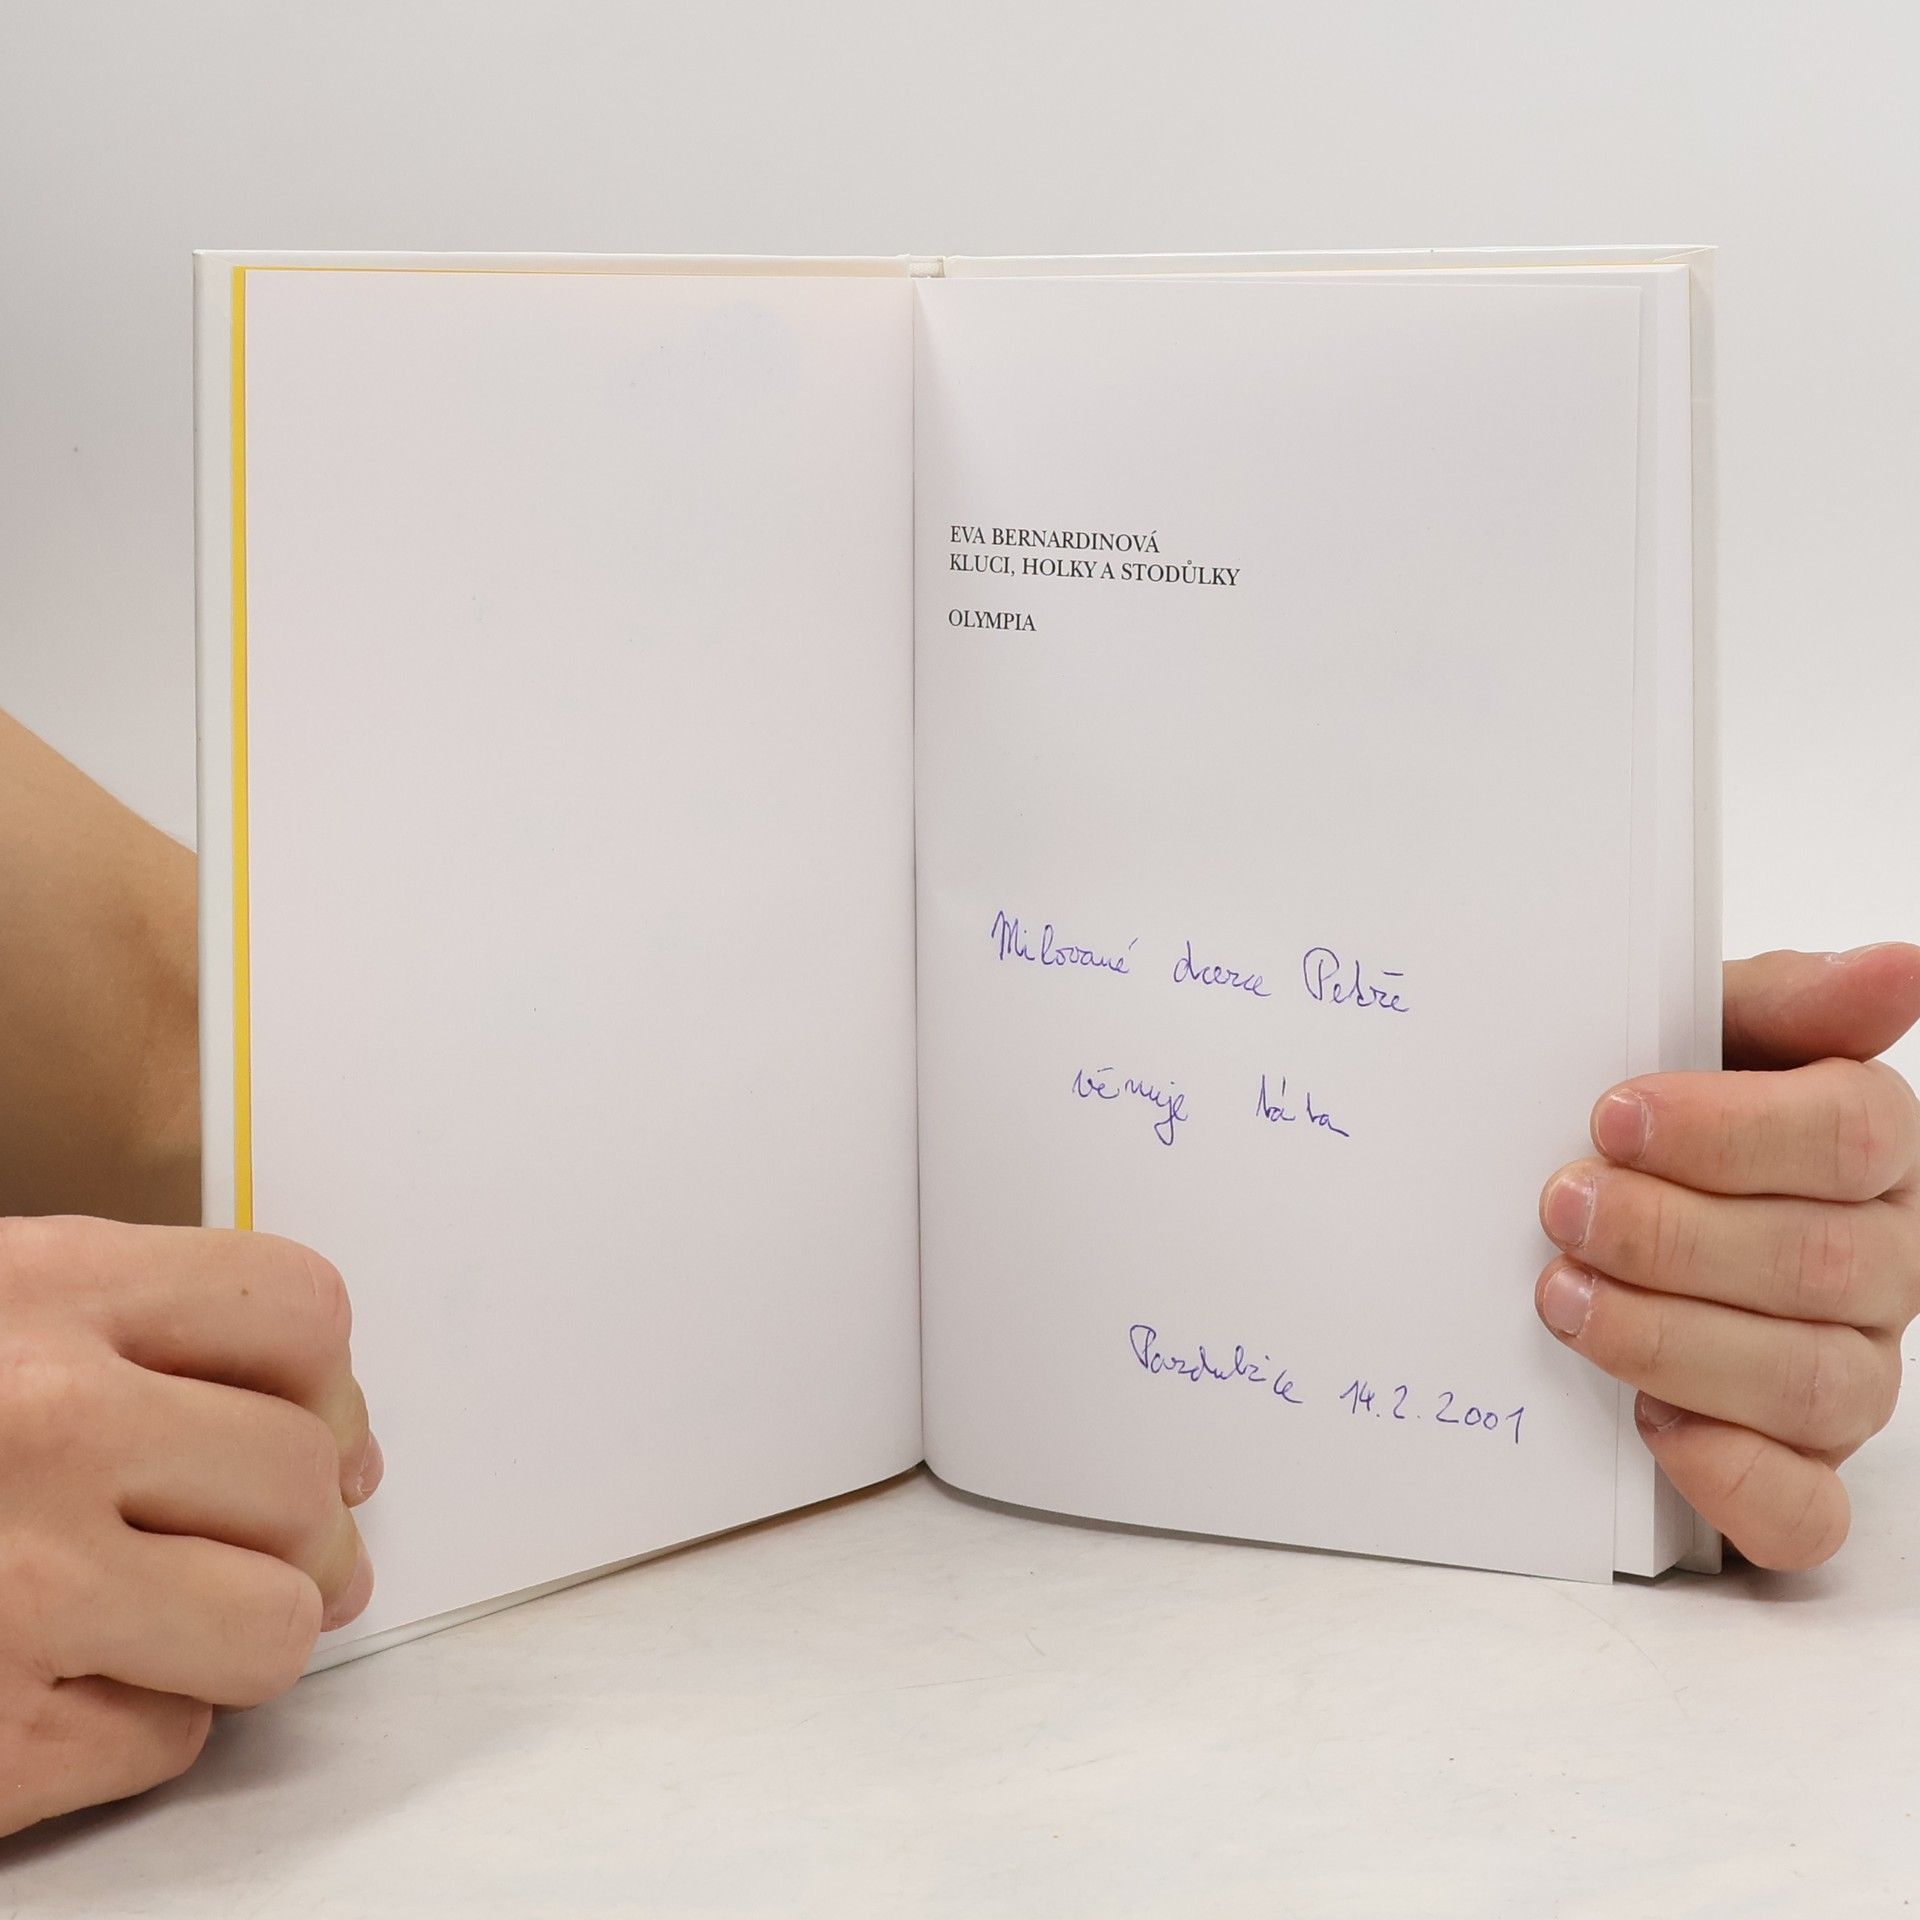 EVA BERNARDINOVÁ
KLUCI, HOLKY A STODŮLKY
OLYMPIA
Milované dcerce Petře
věnuje táta
Pardubice 14.2.2001